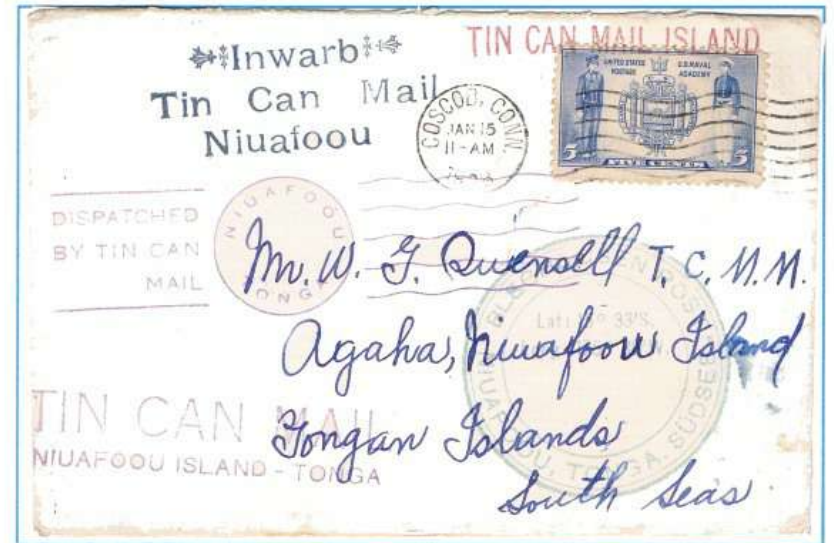 TIN CAN MAIL ISLAND
Inwarb
Tin Can Mail
Niuafoou
COSCOB, CONN.
JAN 15
11-AM
UNITED STATES POSTAGE
U.S. NAVAL ACADEMY
5 FIVE CENTS 5
DISPATCHED
BY TIN CAN
MAIL
NIUAFOOU
TONGA
Mr. W. G. Quensell T. C. M. M.
Agaha, Niuafoou Island
Tongan Islands
South Seas
Lat: 33'S.
NIUAFOOU, TONGA, SÜDSEE
TIN CAN MAIL
NIUAFOOU ISLAND - TONGA